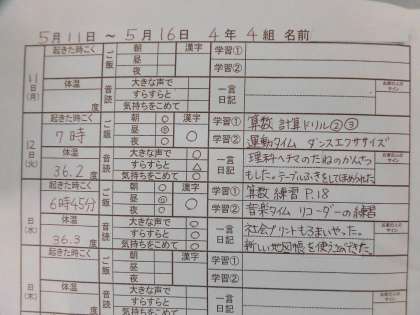 5月11日 ～ 5月16日 4年 4組 名前
起きた時こく ご飯 朝 昼 夜 漢字 学習① 学習②
11日(月) 体温 度 音読 大きな声で すらすらと 気持ちをこめて 一言日記 お家の人のサイン
起きた時こく 7時 ご飯 朝 ○ 昼 ◎ 夜 ○ 漢字 ○ 学習① 算数 計算ドリル②③
学習② 運動タイム ダンスエクササイズ
12日(火) 体温 36.2度 音読 大きな声で ○ すらすらと △ 気持ちをこめて ○ 一言日記 理科ヘチマのたねのかんさつ
もした。テーブルふきをしてほめられた
お家の人のサイン
起きた時こく 6時45分 ご飯 朝 ○ 昼 ◎ 夜 ○ 漢字 ○ 学習① 算数 練習 P.18
学習② 音楽タイム リコーダーの練習
日(水) 体温 36.3度 音読 大きな声で ○ すらすらと ○ 気持ちをこめて ○ 一言日記 社会プリントも3まいやった。
新しい地図帳を使え
お家の人のサイン
起きた時こく ご飯 朝 昼 夜 漢字 学習① 学習②
日(木) 体温 音読 大きな声で すらすらと 気持ちをこめて 一言日記 お家の人のサイン